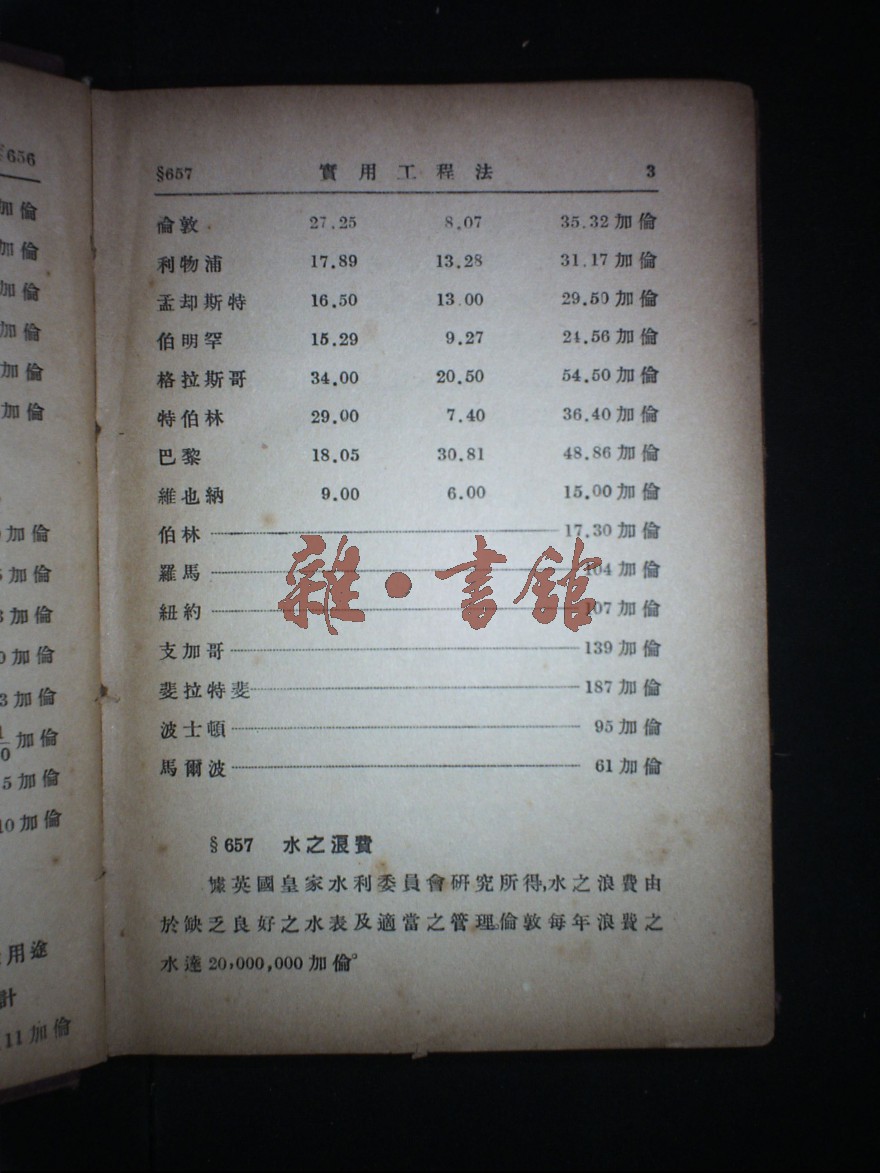 656
加倫
加倫
加倫
加倫
加倫
加倫
加倫
5加倫
3加倫
0加倫
3加倫
加倫
0
5加倫
10加倫
用途
計
11加倫
§657 實用工程法 3
倫敦 27.25 8.07 35.32加倫
利物浦 17.89 13.28 31.17加倫
孟却斯特 16.50 13.00 29.50加倫
伯明罕 15.29 9.27 24.56加倫
格拉斯哥 34.00 20.50 54.50加倫
特伯林 29.00 7.40 36.40加倫
巴黎 18.05 30.81 48.86加倫
維也納 9.00 6.00 15.00加倫
伯林 17.30加倫
羅馬 104加倫
紐約 107加倫
支加哥 139加倫
斐拉特斐 187加倫
波士頓 95加倫
馬爾波 61加倫
雜·書館
§657 水之浪費
據英國皇家水利委員會研究所得,水之浪費由
於缺乏良好之水表及適當之管理。倫敦每年浪費之
水達20,000,000加倫。